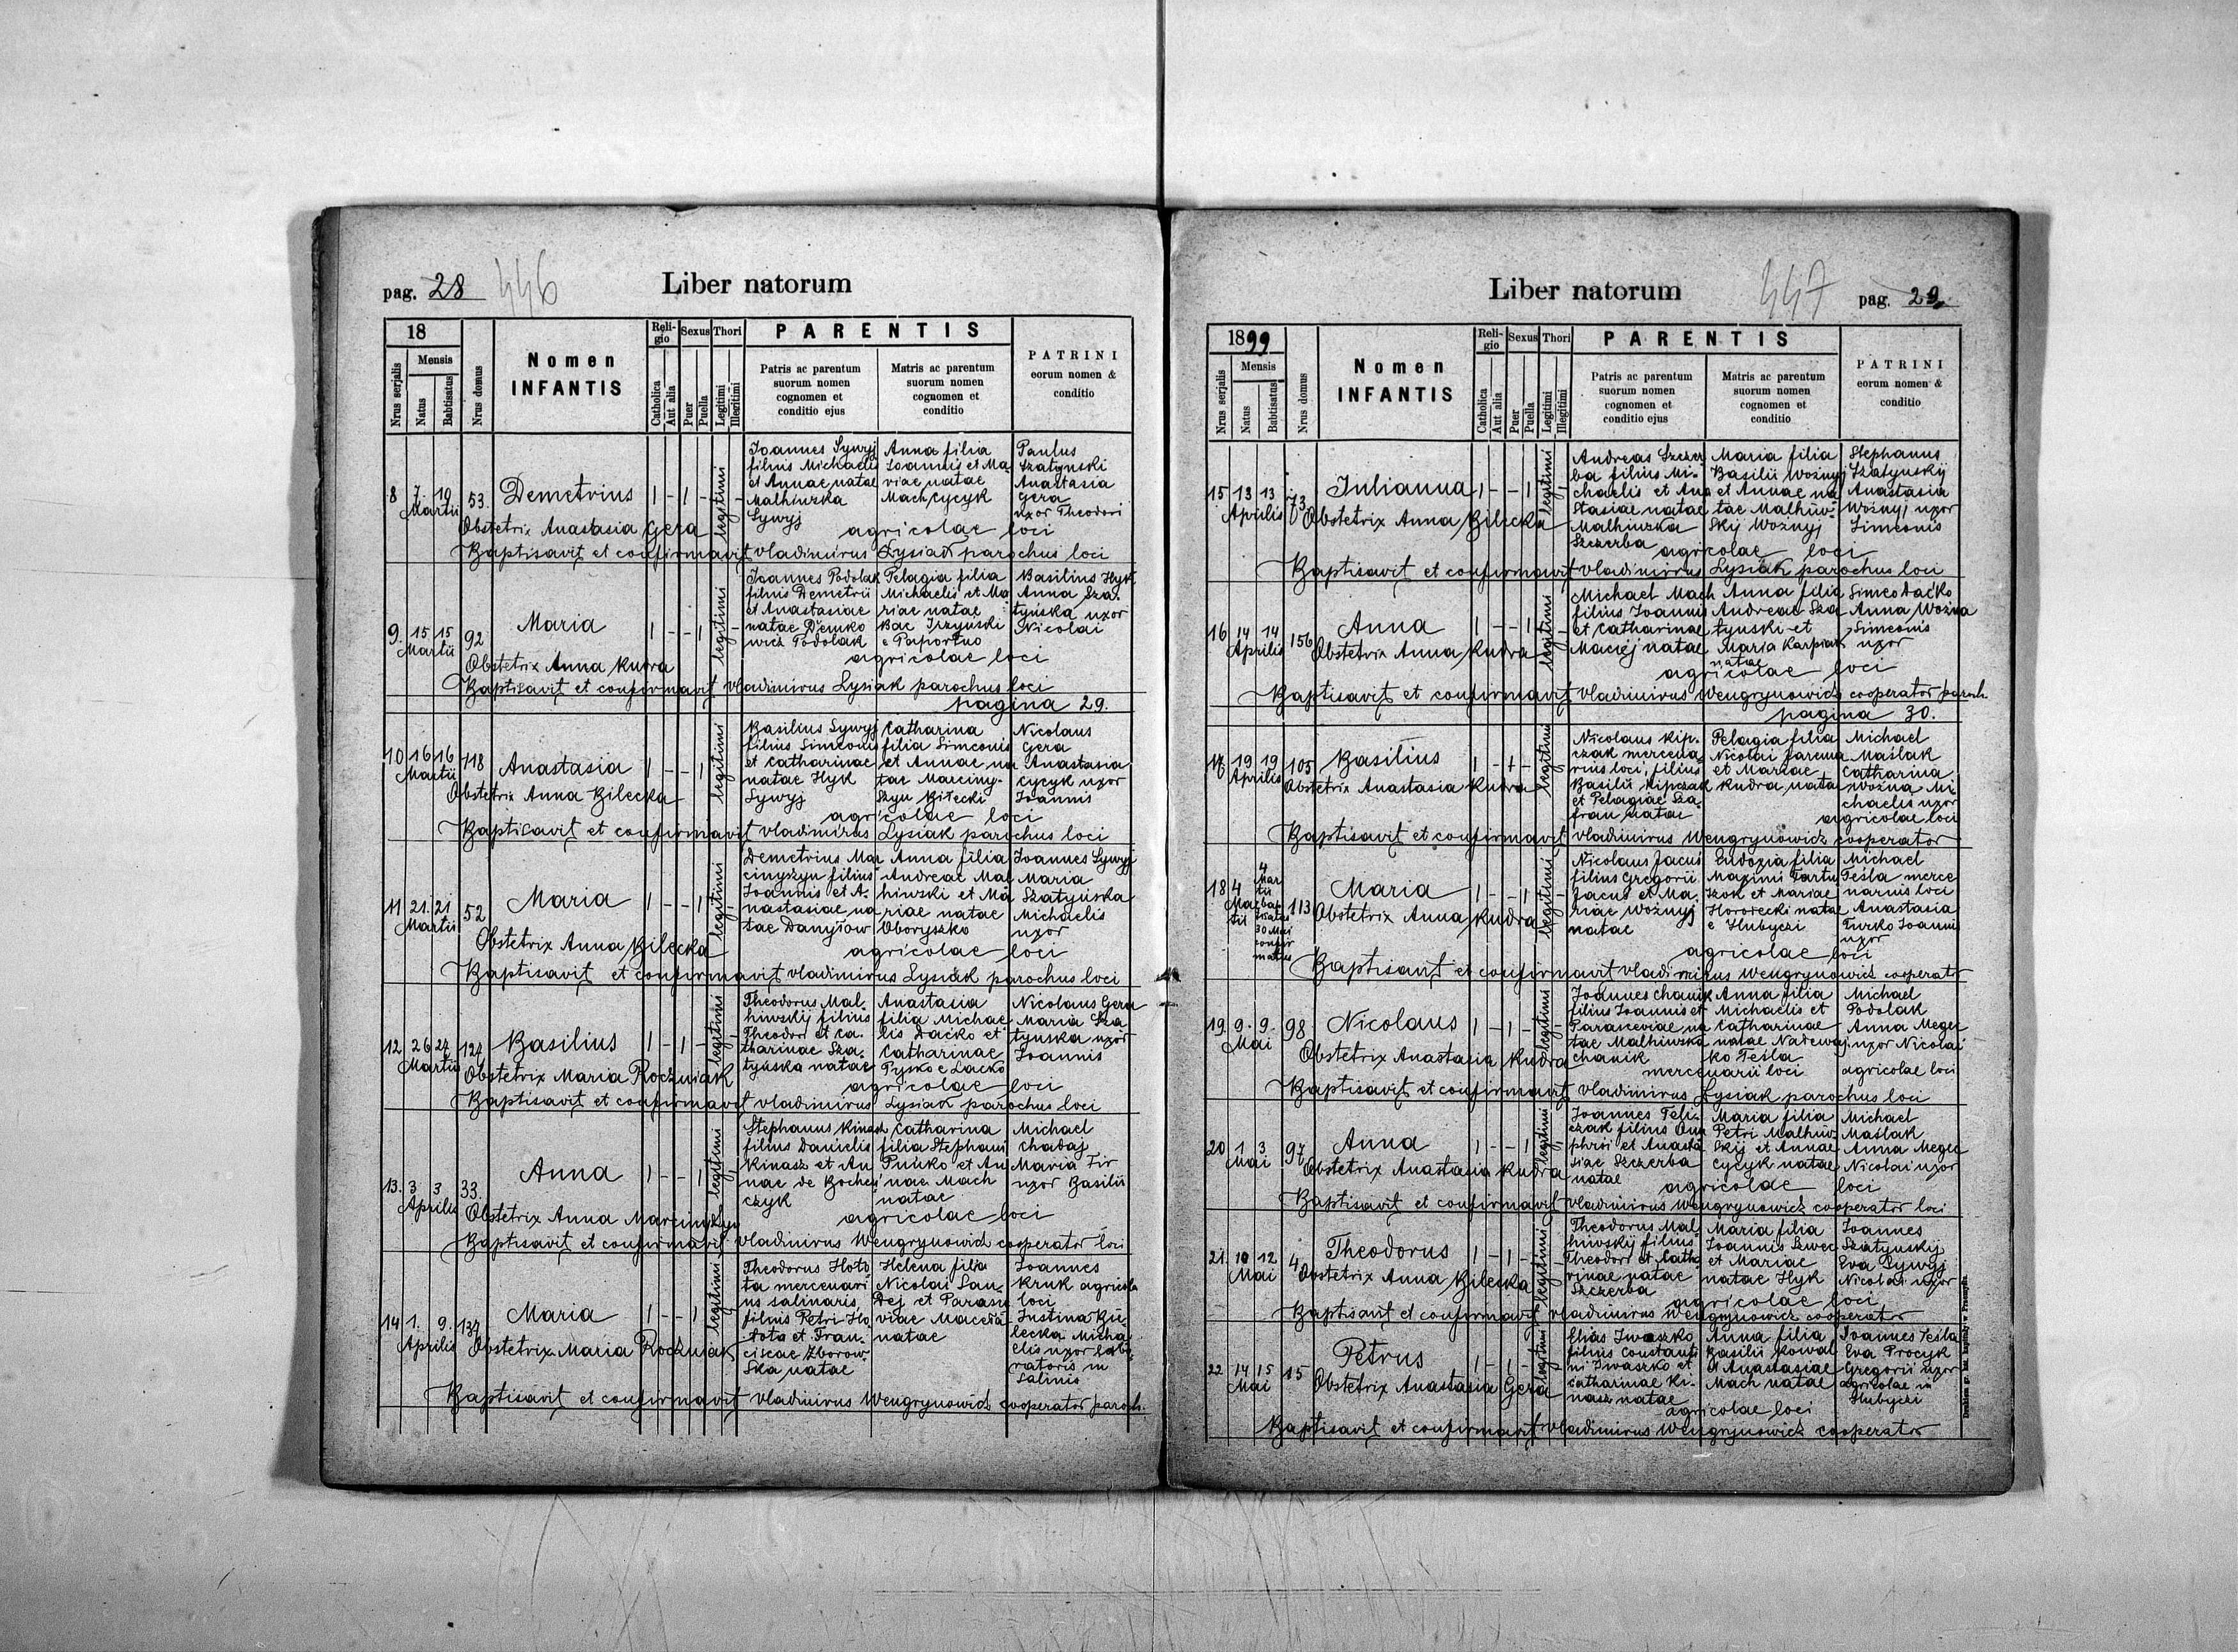 pag. 28 446 Liber natorum
18
Nrus serjalis
Mensis
Natus
Babtisatus
Nrus domus
Nomen
INFANTIS
Reli-
gio
Catholica
Aut alia
Sexus
Puer
Puella
Thori
Legitimi
Illegitimi
PARENTIS
Patris ac parentum
suorum nomen
cognomen et
conditio ejus
Matris ac parentum
suorum nomen
cognomen et
conditio
PATRINI
eorum nomen &
conditio
8 7. 19 Martii 53. Demetrius 1 - 1 - legitimi -
Joannes Sywyj
filius Michaelis
et Annae natae
Malhiwzka
Sywyj
Anna filia
Joannis et Ma-
riae natae
Mach Cycyk
Paulus
Szatynski
Anastasia
Gera
uxor Theodori
Obstetrix Anastasia Gera
agricolae loci
Baptisavit et confirmavit Vladimirus Lysiak parochus loci
9. 15 15 Martii 92 Maria 1 - - 1 legitimi -
Joannes Podolak
filius Demetrii
et Anastasiae
natae Demko
wicz Podolak
Pelagia filia
Michaelis et Ma
riae natae
Bac Irzyński
e Paportno
Basilius Hyk
Anna Sza-
tyńska uxor
Nicolai
Obstetrix Anna Kudra
agricolae loci
Baptisavit et confirmavit Vladimirus Lysiak parochus loci
pagina 29.
10 16 16 Martii 118 Anastasia 1 - - 1 legitimi
Basilius Sywyj
filius Simeonis
et Catharinae
natae Hyk
Sywyj
Catharina
filia Simeonis
et Annae na
tae Marciny-
szyn Biłecki
Nicolaus
Gera
Anastasia
Cycyk uxor
Joannis
Obstetrix Anna Bilecka
agricolae loci
Baptisavit et confirmavit Vladimirus Lysiak parochus loci
11 21. 21 Martii 52 Maria 1 - - 1 legitimi -
Demetrius Mar
cinyszyn filius
Joannis et A-
nastasiae na
tae Danyłow
Anna filia
Andreae Mal
hiwski et Ma
riae natae
Oboryszko
Joannes Sywyj
Maria
Szatyńska
Michaelis
uxor
Obstetrix Anna Bilecka
agricolae loci
Baptisavit et confirmavit Vladimirus Lysiak parochus loci
12 26 27 Martii 127 Basilius 1 - 1 - legitimi -
Theodorus Mal-
hiwskij filius
Theodori et Ca-
tharinae Sza-
tyńska natae
Anastasia
filia Michae
lis Dacko et
Catharinae
Pysko e Lacko
Nicolaus Gera
Maria Sza
tyńska uxor
Joannis
Obstetrix Maria Roczniak
agricolae loci
Baptisavit et confirmavit Vladimirus Lysiak parochus loci
13. 3 3 Aprilis 33. Anna 1 - - 1 legitimi
Stephanus Kinasz
filius Danielis
Kinasz et An
nae de Boches
czyk
Catharina
filia Stephani
Puńko et An
nae Mach
natae
Michael
Chadaj
Maria Fir
uxor Basilii
Obstetrix Anna Marcinyszyn
agricolae loci
Baptisavit et confirmavit Vladimirus Wengrynowicz cooperator loci
14 1. 9. Aprilis 137 Maria 1 - - 1 legitimi
Theodorus Hoto
ta mercenari
us salinaris,
filius Petri Ho
tota et Fran-
ciscae Zborow
ska natae
Helena filia
Nicolai San-
Dej et Parasce
viae Maceda
natae
Joannes
Kruk agricola
loci
Justina Bi
lecka Micha
elis uxor labo
ratoris in
Salinis
Obstetrix Maria Roczniak
Baptisavit et confirmavit Vladimirus Wengrynowicz cooperator paroch.
Liber natorum 447 pag. 29.
1899
Nrus serjalis
Mensis
Natus
Babtisatus
Nrus domus
Nomen
INFANTIS
Reli-
gio
Catholica
Aut alia
Sexus
Puer
Puella
Thori
Legitimi
Illegitimi
PARENTIS
Patris ac parentum
suorum nomen
cognomen et
conditio ejus
Matris ac parentum
suorum nomen
cognomen et
conditio
PATRINI
eorum nomen &
conditio
15 13 13 Aprilis 73 Julianna 1 - - 1 legitimi
Andreas Szczer
ba filius Mi-
chaelis et Ana
stasiae natae
Malhiwzka
Szczerba
Maria filia
Basilii Woźnyj
et Annae na
tae Malhiw-
skij Woźnyj
Stephanus
Szatynskij
Anastasia
Woźnyj uxor
Simeonis
Obstetrix Anna Bilecka
agricolae loci
Baptisavit et confirmavit Vladimirus Lysiak parochus loci
16 14 14 Aprilis 156 Anna 1 - - 1 legitimi
Michael Mach
filius Joannis
et Catharinae
Maciej natae
Anna filia
Andreae Sza
tynski et
Maria Karpiak
natae
Simeo Daćko
Anna Woźna
Simeonis
uxor
Obstetrix Anna Kudra
agricolae loci
Baptisavit et confirmavit Vladimirus Wengrynowicz cooperator paroch.
pagina 30.
17 19 19 Aprilis 105 Basilius 1 - 1 - legitimi
Nicolaus Kip-
czak mercena-
rius loci, filius
Basilii Kipczak
et Pelagiae Sza-
fran natae
Pelagia filia
Nicolai Jarema
et Mariae
Kudra natae
Michael
Maślak
Catharina
Woźna Mi-
chaelis uxor
agricolae loci
Obstetrix Anastasia Kudra
Baptisavit et confirmavit Vladimirus Wengrynowicz cooperator
18 4 Martii 4 Martii 30 Mai confirmatus 113 Maria 1 - - 1 legitimi
Nicolaus Jacus
filius Gregorii
Jacus et Ma-
riae Woźnyj
natae
Eudoxia filia
Maximi Tartu
Szok et Mariae
Horodecki natae
e Hubyczi
Michael
Teśla merce
narius loci
Anastasia
Turko Joannis
uxor
Obstetrix Anna Kudra
agricolae loci
Baptisavit et confirmavit Vladimirus Wengrynowicz cooperator
19. 9. 9. Mai 98 Nicolaus 1 - 1 - legitimi
Joannes Chanik
filius Joannis et
Parasceviae na
tae Malhiwska
chanik
Anna filia
Michaelis et
Catharinae
natae Nadewaj-
ko Teśla
Michael
Podolak
Anna Megec
uxor Nicolai
Obstetrix Anastasia Kudra
mercenarii loci agricolae loci
Baptisavit et confirmavit Vladimirus Lysiak parochus loci
20 1. 3. Mai 97 Anna 1 - - 1 legitimi
Joannes Teli-
czak filius Onu
phrii et Anasta
siae Szczerba
natae
Maria filia
Petri Malhiw-
skij et Annae
Cycyk natae
Michael
Maślak
Anna Megec
Nicolai uxor
Obstetrix Anastasia Kudra
agricolae loci
Baptisavit et confirmavit Vladimirus Wengrynowicz cooperator loci
21. 10 12 Mai 4 Theodorus 1 - 1 - legitimi
Theodorus Mal
hiwskij filius
Theodori et Catha
rinae natae
Szczerba
Maria filia
Joannis Szwec
et Mariae
natae Hyk
Joannes
Szatynskij
Eva Sywyj
Nicolai uxor
Obstetrix Anna Bilecka
agricolae loci
Baptisavit et confirmavit Vladimirus Wengrynowicz cooperator
22 14 15 Mai 15 Petrus 1 - 1 - legitimi
Elias Iwaszko
filius Constanti
ni Iwaszko et
Catharinae Ki-
nasz natae
Anna filia
Basilii Kowal
et Anastasiae
Mach natae
Joannes Teśla
Eva Procyk
Gregorii uxor
agricolae in
Hubyczi
Obstetrix Anastasia Gera
agricolae loci
Baptisavit et confirmavit Vladimirus Wengrynowicz cooperator